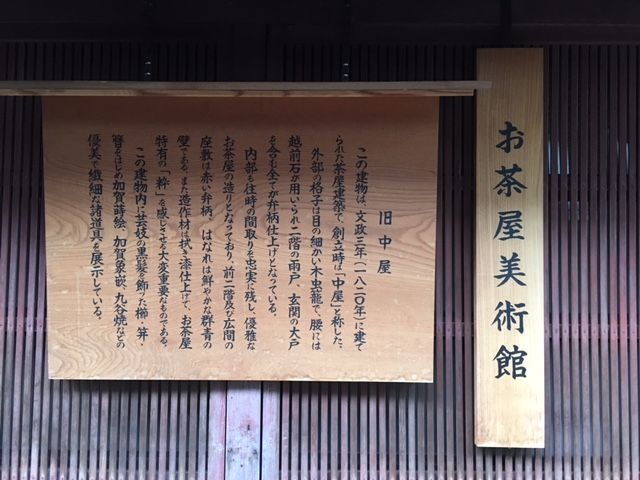 お茶屋美術館
旧中屋
この建物は、文政三年(一八二〇年)に建て
られた茶屋建築で、創立時は「中屋」と称した。
外部の格子は目の細かい木虫籠で、腰には
越前石が用いられ二階の雨戸、玄関の大戸
を含む全てが弁柄仕上げとなっている。
内部も往時の間取りを忠実に残し、優雅な
お茶屋の造りとなっており、前二階及び広間の
座敷は赤い弁柄、はなれは鮮やかな群青の
壁である。また造作材は拭き漆仕上げで、お茶屋
特有の「粋」を感じさせる大変重要なものである。
この建物内に芸妓の黒髪を飾った櫛・笄・
簪をはじめ加賀蒔絵、加賀象嵌、九谷焼などの
優美で繊細な諸道具を展示している。